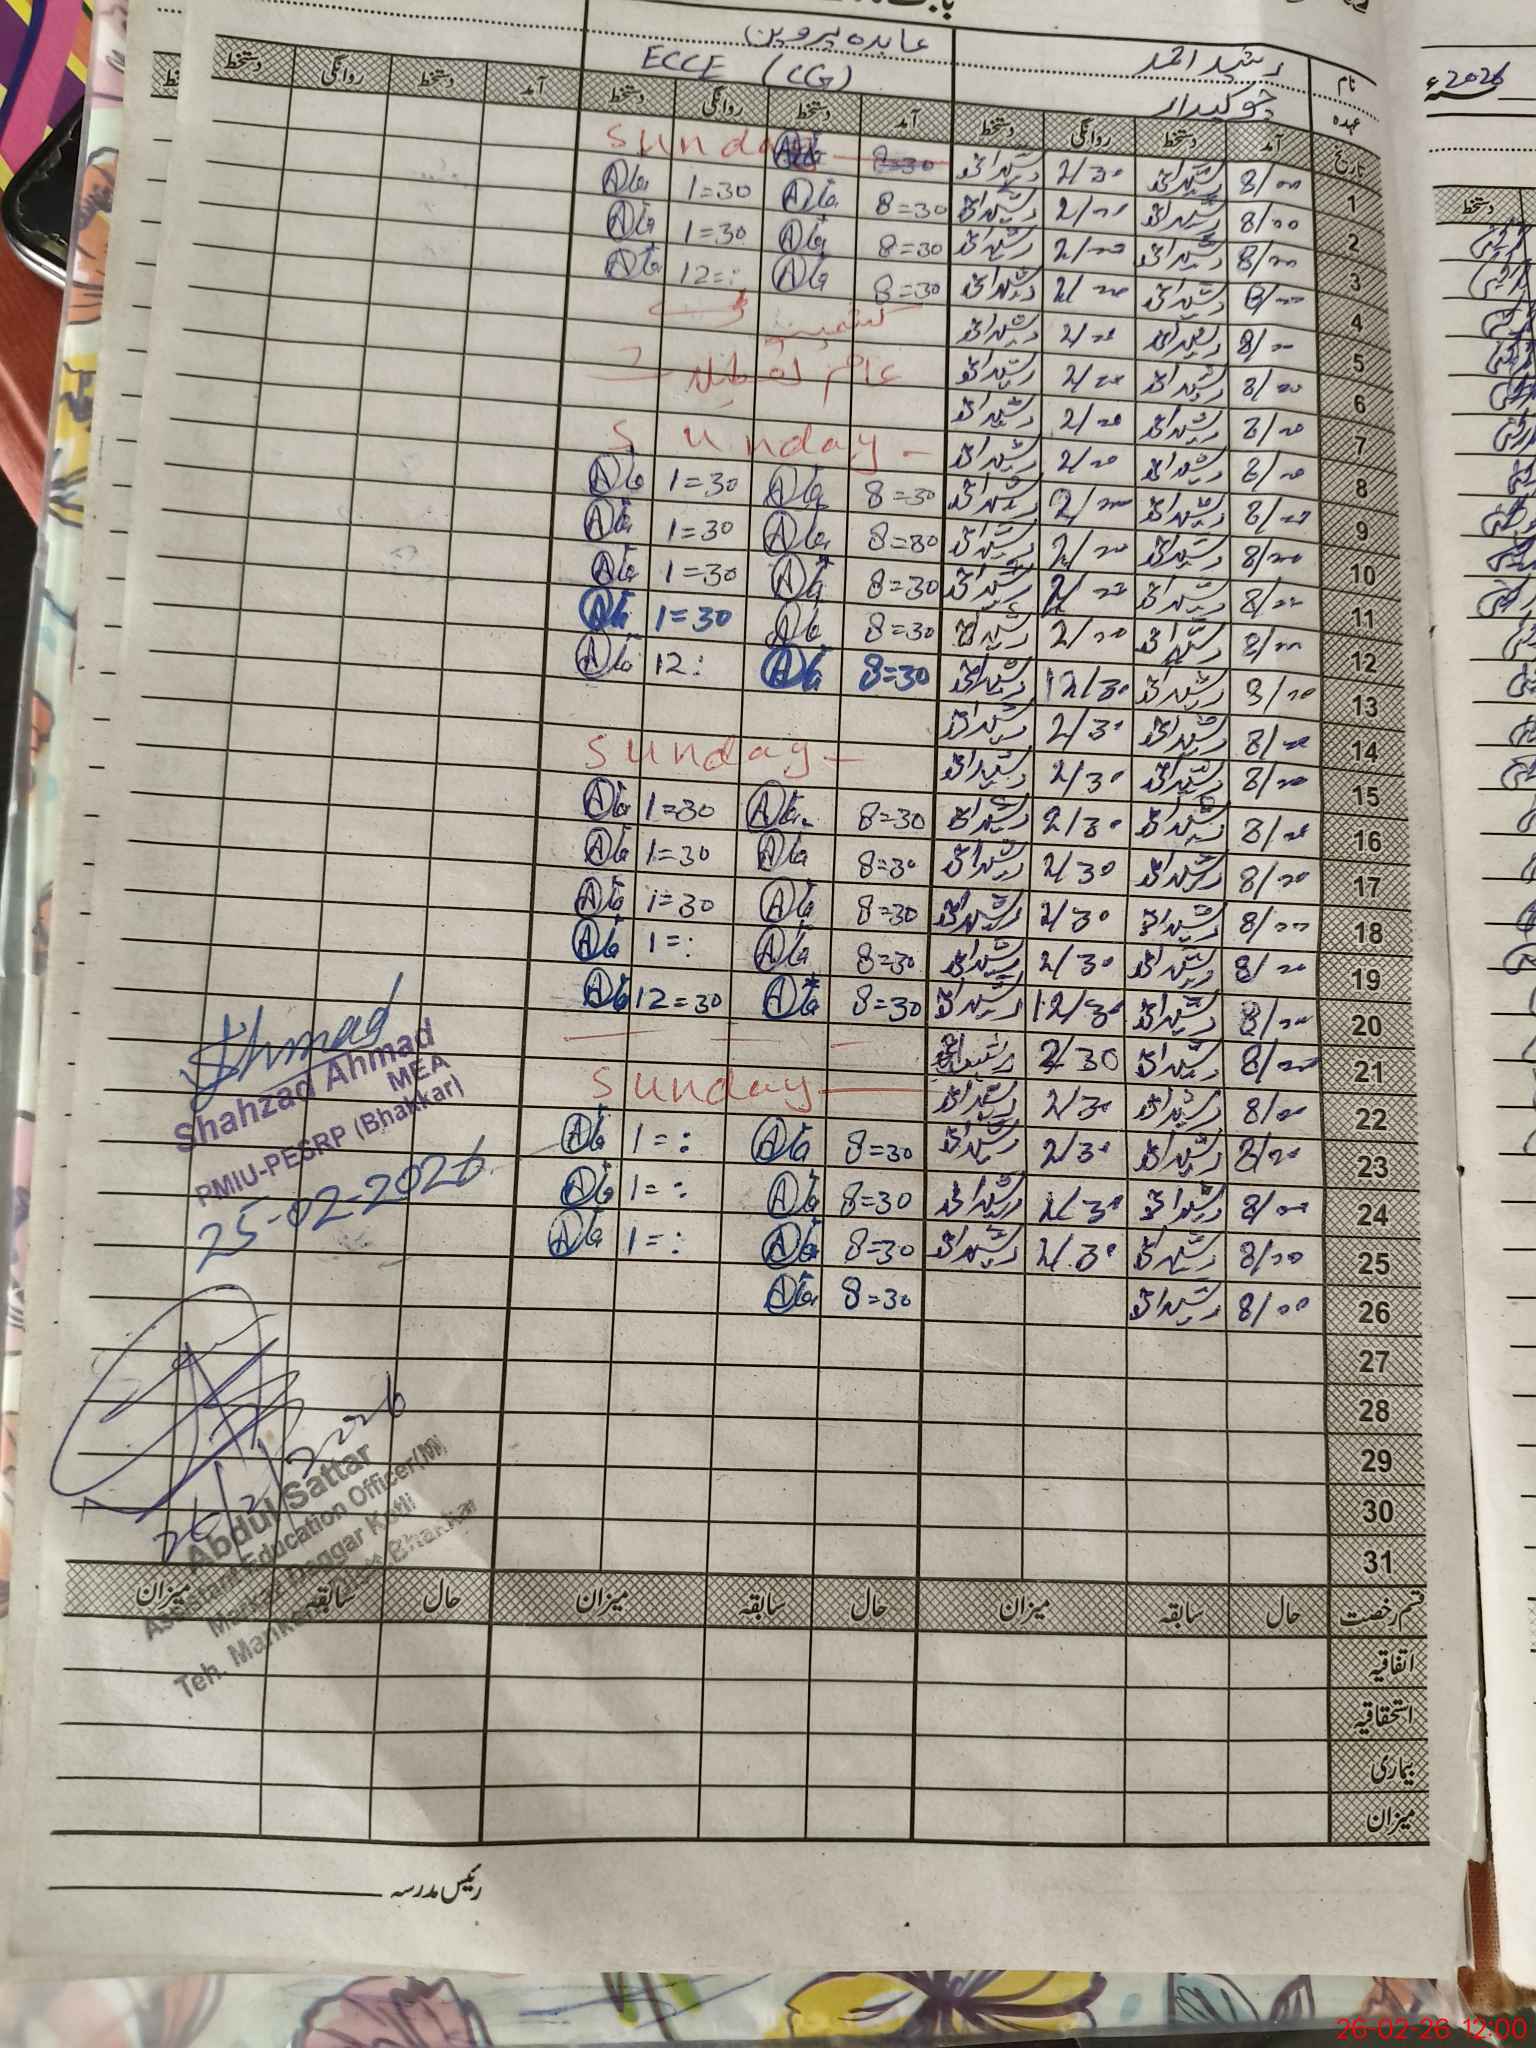 2026ء
نام رشید احمد عابدہ پروین
عہدہ چوکیدار ECCE (CG)
تاریخ آمد دستخط روانگی دستخط آمد دستخط روانگی دستخط آمد دستخط روانگی دستخط
1 8/00 رشید احمد 2/30 رشید احمد 8=30 Sunday
2 8/00 رشید احمد 2/00 رشید احمد 8=30 1=30
3 8/00 رشید احمد 2/00 رشید احمد 8=30 1=30
4 8/00 رشید احمد 2/00 رشید احمد 8=30 12=:
5 8/00 رشید احمد 2/00 رشید احمد کشمیر ڈے
6 8/00 رشید احمد 2/00 رشید احمد عام تعطیل
7 8/00 رشید احمد 2/00 رشید احمد
8 8/00 رشید احمد 2/00 رشید احمد Sunday
9 8/00 رشید احمد 2/00 رشید احمد 8=30 1=30
10 8/00 رشید احمد 2/00 رشید احمد 8=30 1=30
11 8/00 رشید احمد 2/00 رشید احمد 8=30 1=30
12 8/00 رشید احمد 2/00 رشید احمد 8=30 1=30
13 8/00 رشید احمد 12/30 رشید احمد 8=30 12:
14 8/00 رشید احمد 2/30 رشید احمد
15 8/00 رشید احمد 2/30 رشید احمد Sunday
16 8/00 رشید احمد 2/30 رشید احمد 8=30 1=30
17 8/00 رشید احمد 2/30 رشید احمد 8=30 1=30
18 8/00 رشید احمد 2/30 رشید احمد 8=30 1=30
19 8/00 رشید احمد 2/30 رشید احمد 8=30 1=:
20 8/00 رشید احمد 12/30 رشید احمد 8=30 12=30
21 8/00 رشید احمد 2/30 رشید احمد
22 8/00 رشید احمد 2/30 رشید احمد Sunday
23 8/00 رشید احمد 2/30 رشید احمد 8=30 1=:
24 8/00 رشید احمد 2/30 رشید احمد 8=30 1=:
25 8/00 رشید احمد 2/30 رشید احمد 8=30 1=:
26 8/00 رشید احمد 8=30
27
28
29
30
31
Ahmad
Shahzad Ahmad
MEA
PMIU-PESRP (Bhakkar)
25-02-2026
26/2/2026
Abdul Sattar
Assistant Education Officer(M)
Markaz Daggar Kotli
Teh. Mankera Distt. Bhakkar
قسم رخصت حال سابقہ میزان حال سابقہ میزان حال سابقہ میزان
اتفاقیہ
استحقاقیہ
بیماری
میزان
رئیس مدرسہ
26-02-26 12:00